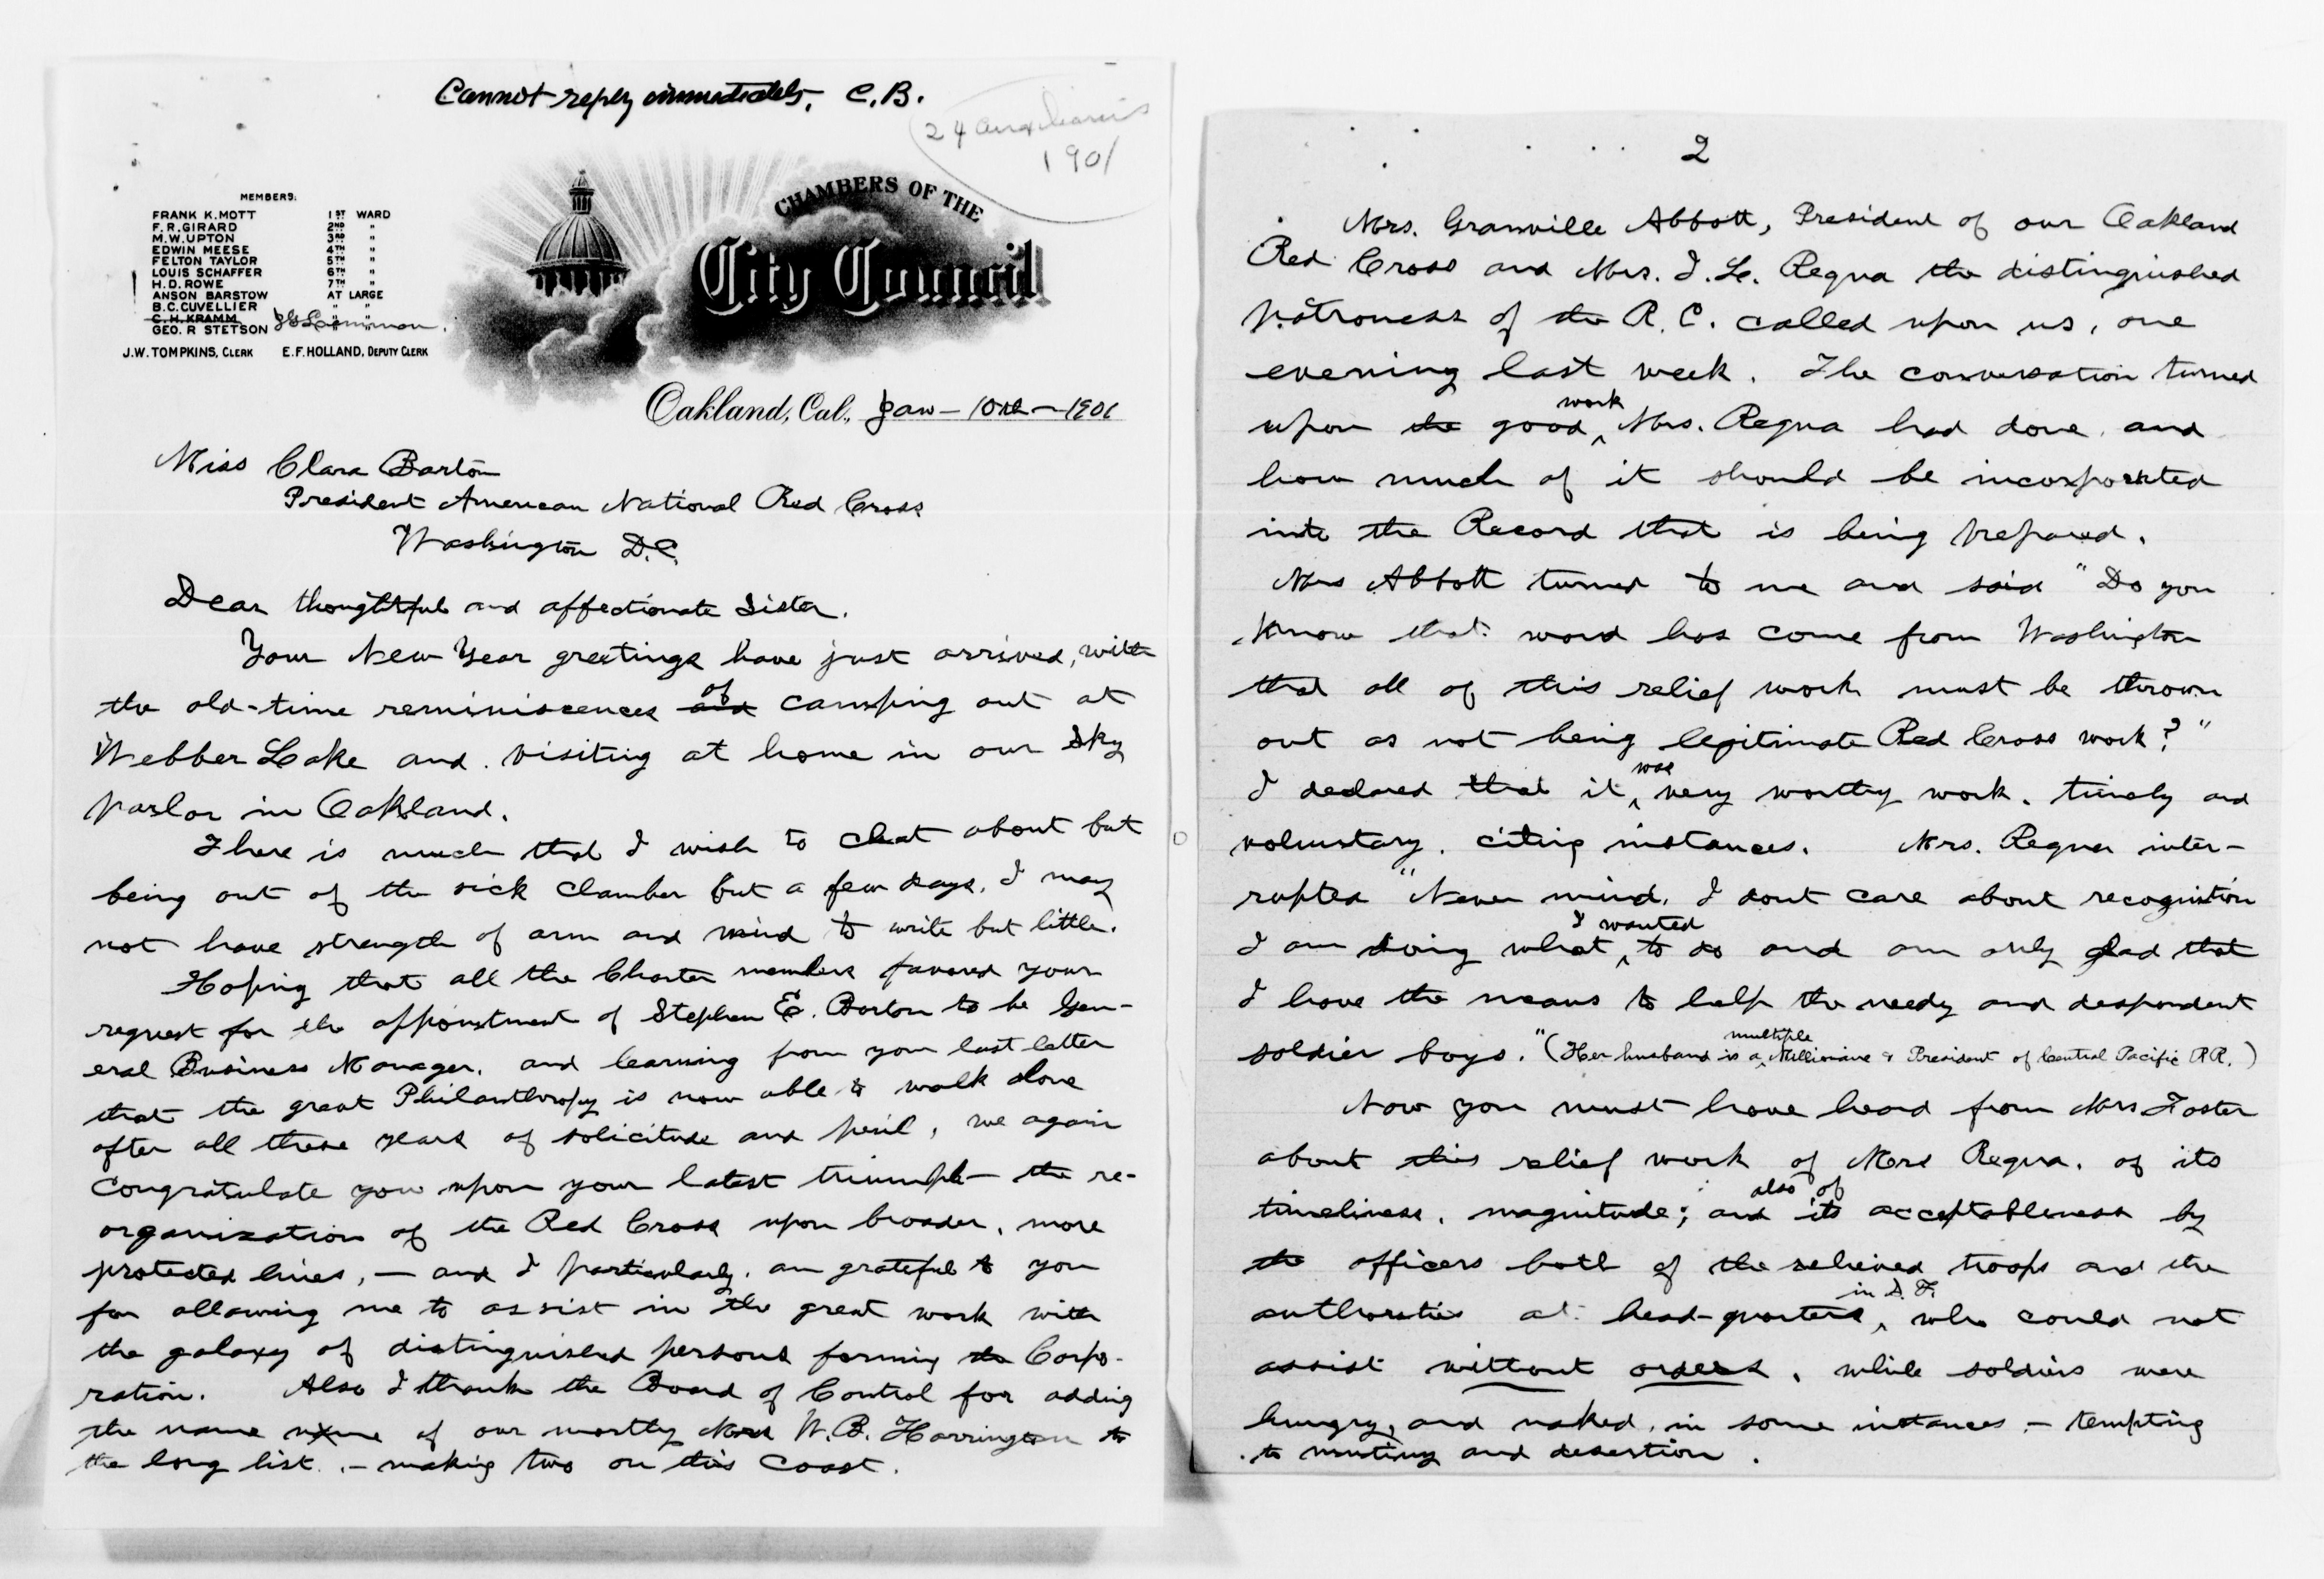 Cannot reply immediately, C.B.
24 auxiliaries
1901
MEMBERS:
FRANK K. MOTT 1ST WARD
F. R. GIRARD 2ND "
M. W. UPTON 3RD "
EDWIN MEESE 4TH "
FELTON TAYLOR 5TH "
LOUIS SCHAFFER 6TH "
H. D. ROWE 7TH "
ANSON BARSTOW AT LARGE
B. C. CUVELLIER " "
C. H. KRAMM " "
GEO. R STETSON " "
J G Lemmon.
J. W. TOMPKINS, CLERK E. F. HOLLAND, DEPUTY CLERK
CHAMBERS OF THE
City Council
Oakland, Cal., Jan - 10th - 1901
Miss Clara Barton
President American National Red Cross
Washington D.C.
Dear thoughtful and affectionate Sister.
Your New Year greetings have just arrived, with
the old-time reminiscences and of camping out at
Webber Lake and visiting at home in our Sky
parlor in Oakland.
There is much that I wish to chat about but
being out of the sick chamber but a few days, I may
not have strength of arm and mind to write but little.
Hoping that all the Charter members favored your
request for the appointment of Stephen E. Barton to be Gen-
eral Business Manager, and learning from your last letter
that the great Philanthropy is now able to walk alone
after all these years of solicitude and peril, we again
congratulate you upon your latest triumph - the re-
organization of the Red Cross upon broader, more
protected lines, - and I particularly, am grateful to you
for allowing me to assist in the great work with
the galaxy of distinguished persons forming the Corpo-
ration. Also I thank the Board of Control for adding
the name of our worthy Mrs W. B. Harrington to
the long list. - making two on this Coast.
2
Mrs. Granville Abbott, President of our Oakland
Red Cross and Mrs. I. L. Requa the distinguished
patroness of the R. C. called upon us, one
evening last week. The conversation turned
upon the good work Mrs. Requa had done, and
how much of it should be incorporated
into the Record that is being prepared.
Mrs Abbott turned to me and said "Do you
know that word has come from Washington
that all of this relief work must be thrown
out as not being legitimate Red Cross work?"
I declared that it was very worthy work, timely and
voluntary, citing instances. Mrs. Requa inter-
rupted "Never mind, I dont care about recognition
I am doing what I wanted to do and am only glad that
I have the means to help the needy and despondent
soldier boys." (Her husband is a multiple Millionaire & President of Central Pacific RR.)
Now you must have heard from Mrs Foster
about this relief work of Mrs Requa, of its
timeliness, magnitude; and also of its acceptableness by
the officers both of the relieved troops and the
authorities at head-quarters in S. F., who could not
assist without orders, while soldiers were
hungry, and naked, in some instances, - tempting
to mutiny and desertion.